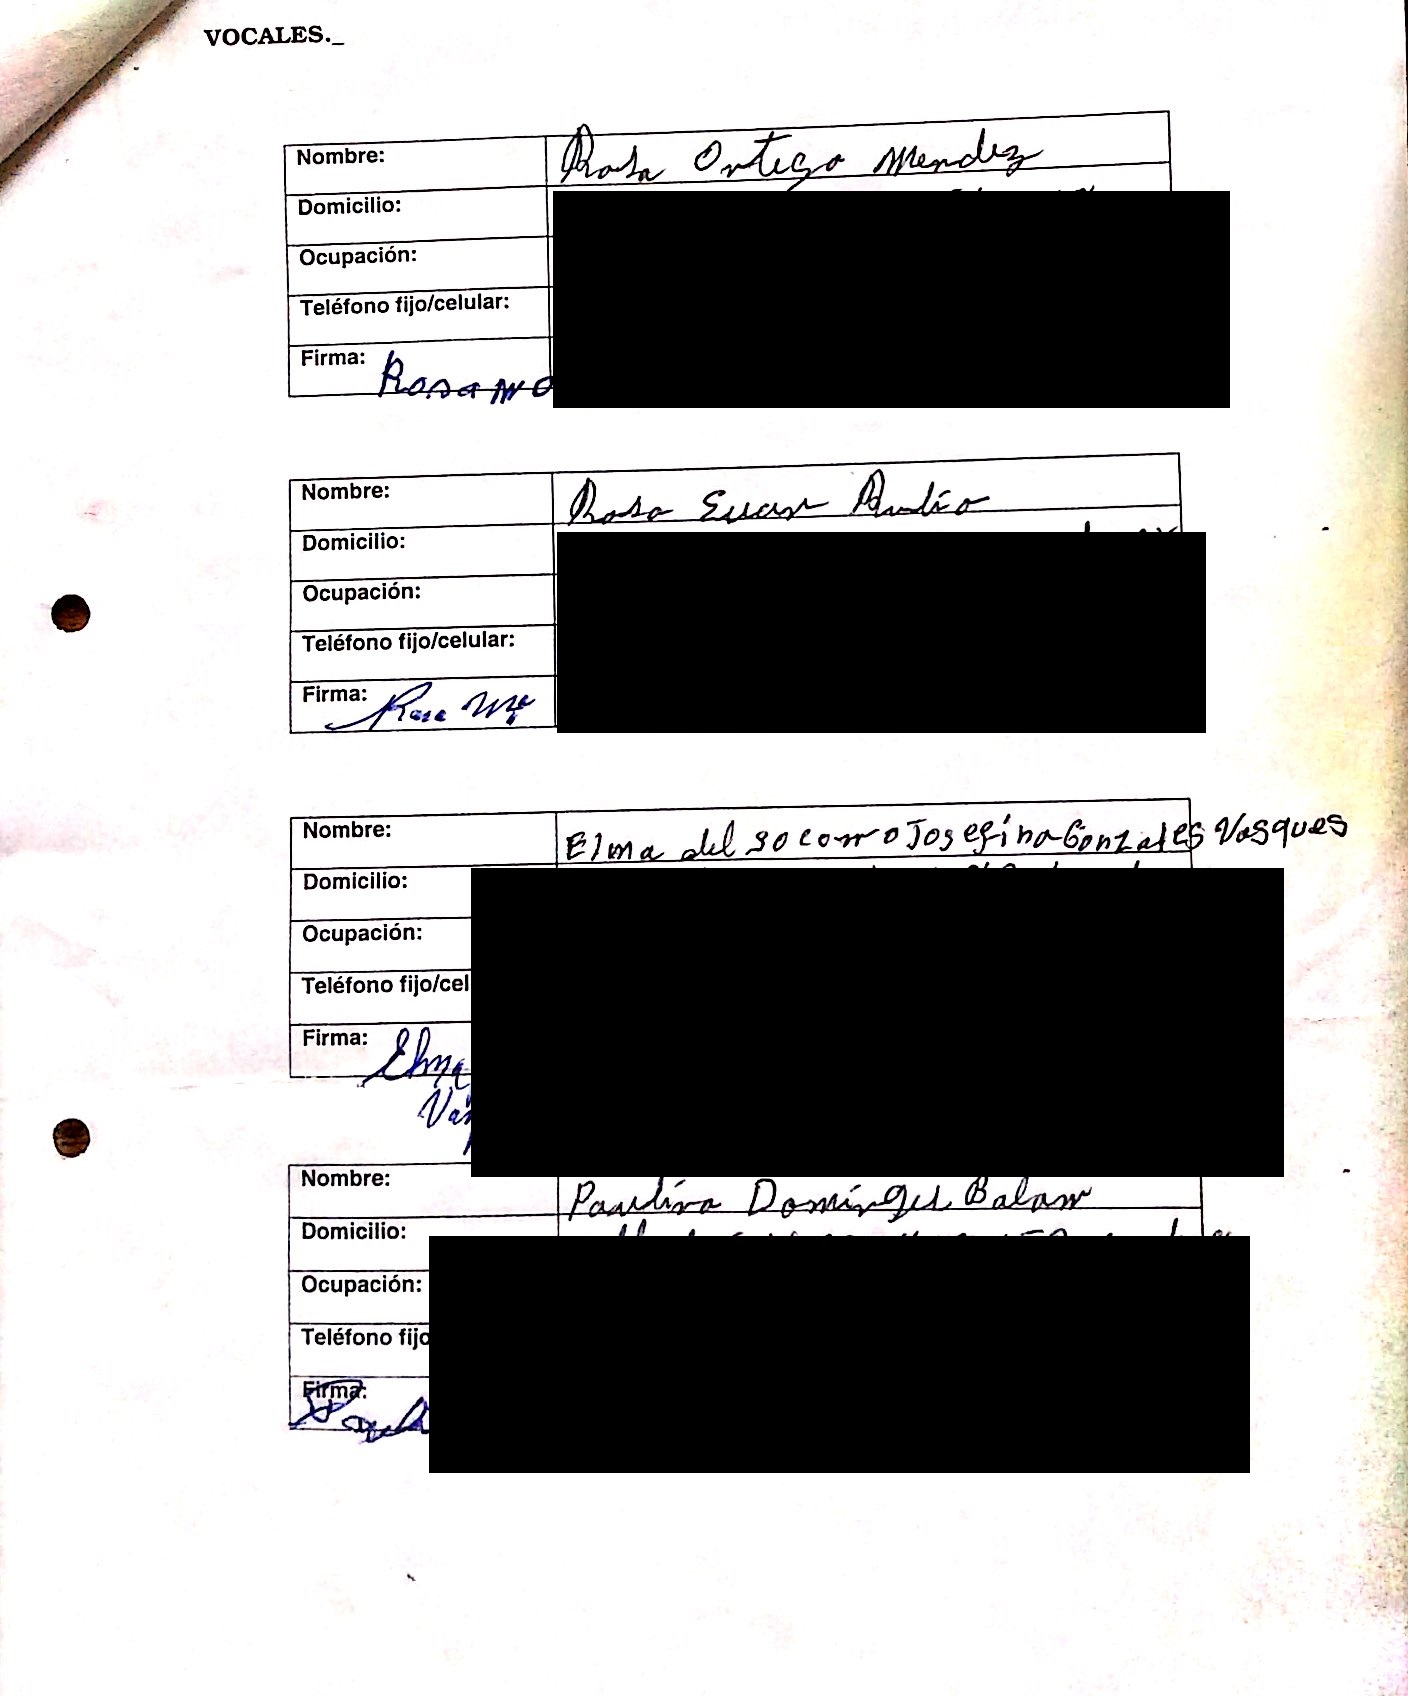 VOCALES._
Nombre: Rosa Ortega Mendez
Domicilio:
Ocupación:
Teléfono fijo/celular:
Firma: Rosa M O
Nombre: Rosa Euan
Domicilio:
Ocupación:
Teléfono fijo/celular:
Firma: Rosa Ma
Nombre: Elma del socorro Josefina Gonzales Vasques
Domicilio:
Ocupación:
Teléfono fijo/cel
Firma: Elma
Nombre: Paulina Domínges Balam
Domicilio:
Ocupación:
Teléfono fijo
Firma: